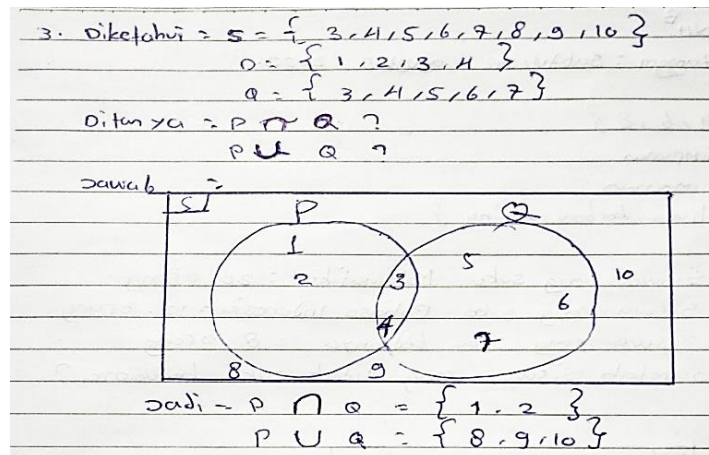 3. Diketahui = S = { 3, 4, 5, 6, 7, 8, 9, 10 }
P = { 1, 2, 3, 4 }
Q = { 3, 4, 5, 6, 7 }
Ditanya = P ∩ Q ?
P ∪ Q ?
Jawab =
S P Q
1
2 3 5 10
4 6
7
8 9
Jadi = P ∩ Q = { 1. 2 }
P ∪ Q = { 8, 9, 10 }